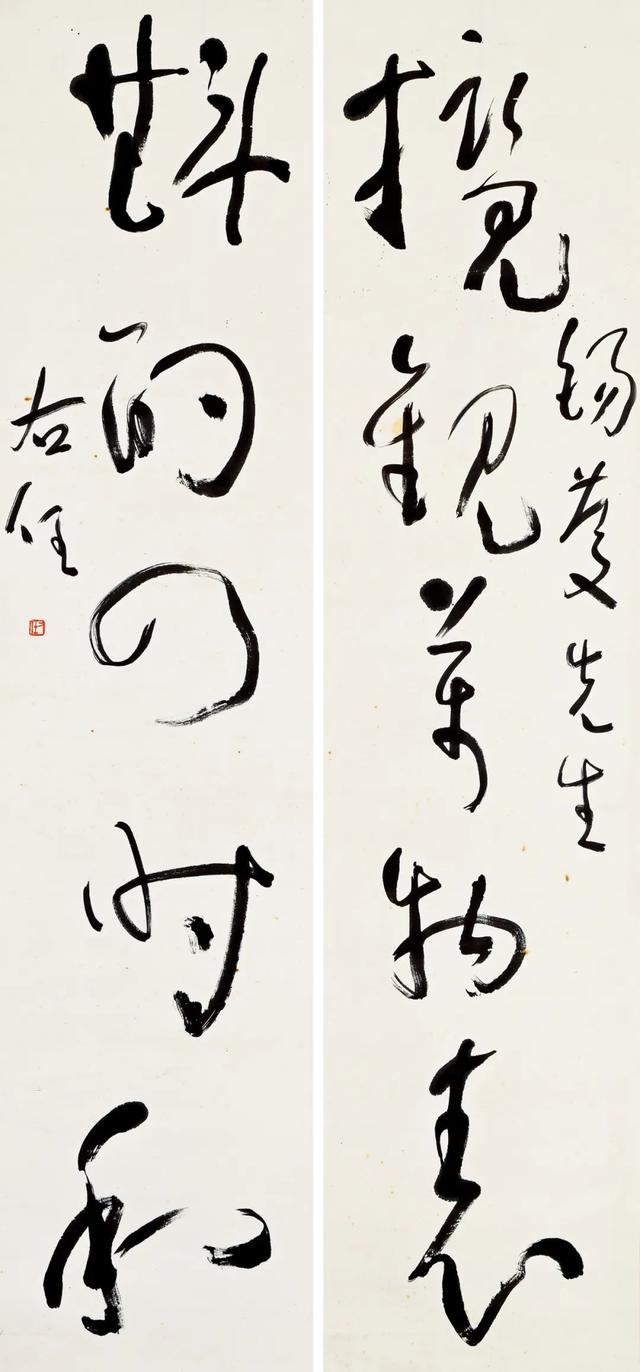 攬觀萬物表
錫蕿先生
斟酌四時和
右任